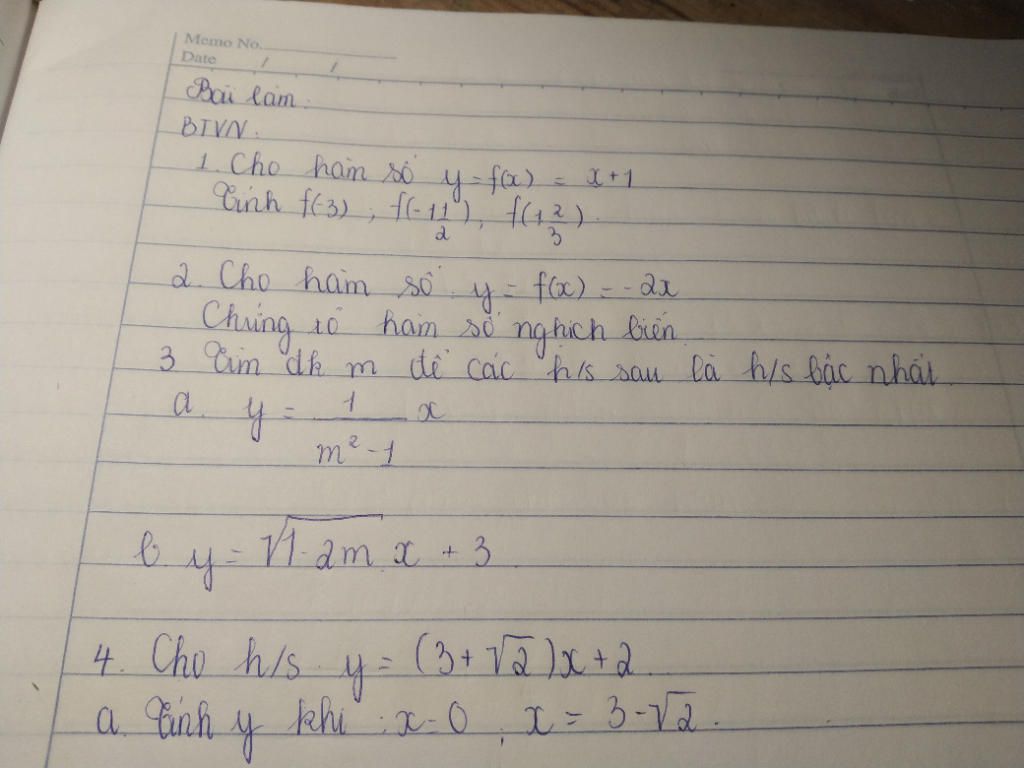 Memo No.
Date / /
Bài làm.
BTVN.
1. Cho hàm số y = f(x) = x + 1
Tính f(-3) ; f(-1 1/2), f(1 2/3).
2. Cho hàm số y = f(x) = -2x
Chứng tỏ hàm số nghịch biến
3 Tìm đk m để các h/s sau là h/s bậc nhất
a. y = 1/(m² - 1) x
b. y = √(1-2m) x + 3
4. Cho h/s y = (3 + √2)x + 2
a. Tính y khi : x = 0 ; x = 3 - √2.